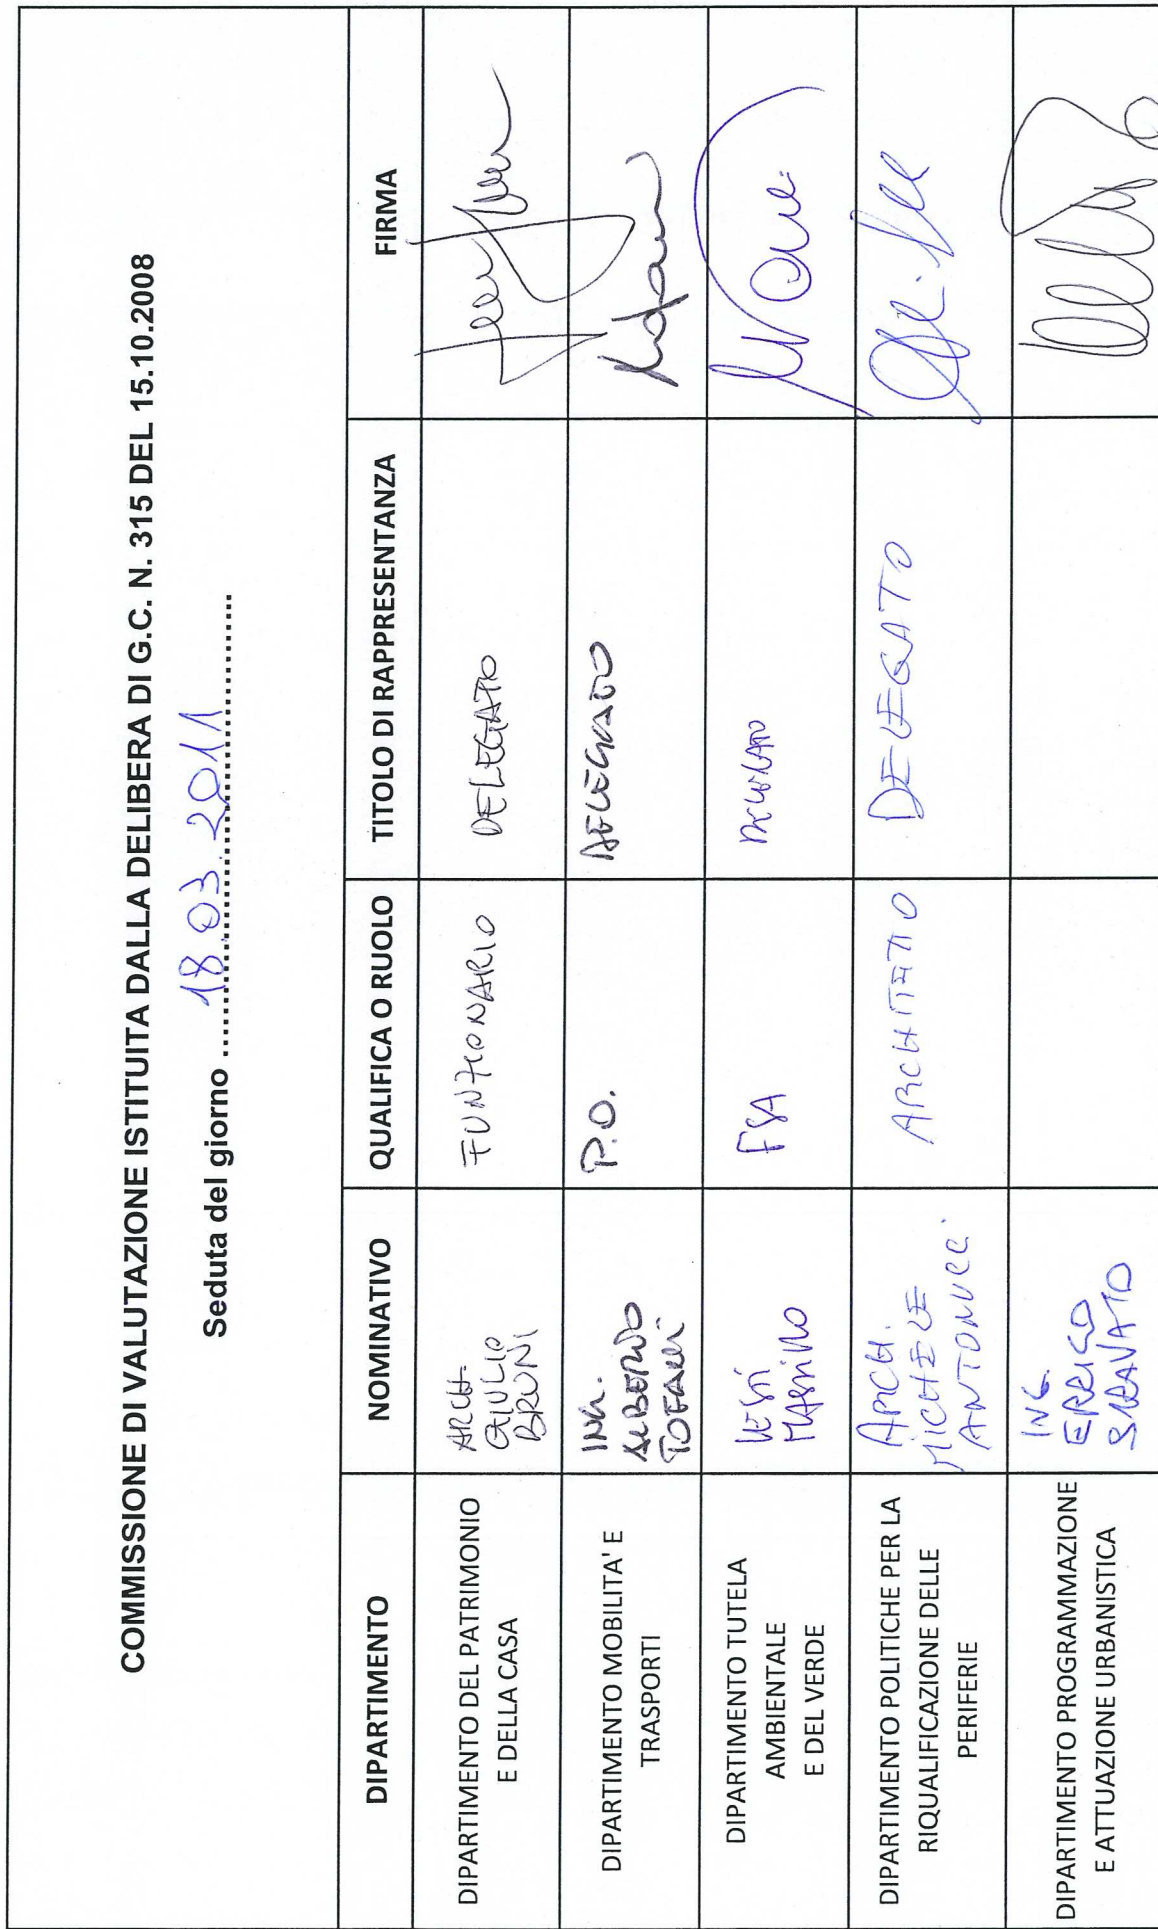 COMMISSIONE DI VALUTAZIONE ISTITUITA DALLA DELIBERA DI G.C. N. 315 DEL 15.10.2008
Seduta del giorno ...18.03.2011...
DIPARTIMENTO NOMINATIVO QUALIFICA O RUOLO TITOLO DI RAPPRESENTANZA FIRMA
DIPARTIMENTO DEL PATRIMONIO
E DELLA CASA
ARCH.
GIULIO
BRUNI
FUNZIONARIO
DELEGATO
DIPARTIMENTO MOBILITA' E
TRASPORTI
ING.
ALBERTO
TOFANI
P.O.
DELEGATO
DIPARTIMENTO TUTELA
AMBIENTALE
E DEL VERDE
MASSIMO
FSA
DELEGATO
DIPARTIMENTO POLITICHE PER LA
RIQUALIFICAZIONE DELLE
PERIFERIE
ARCH.
MICHELE
ANTONUCCI
ARCHITETTO
DELEGATO
DIPARTIMENTO PROGRAMMAZIONE
E ATTUAZIONE URBANISTICA
ING.
ERRICO